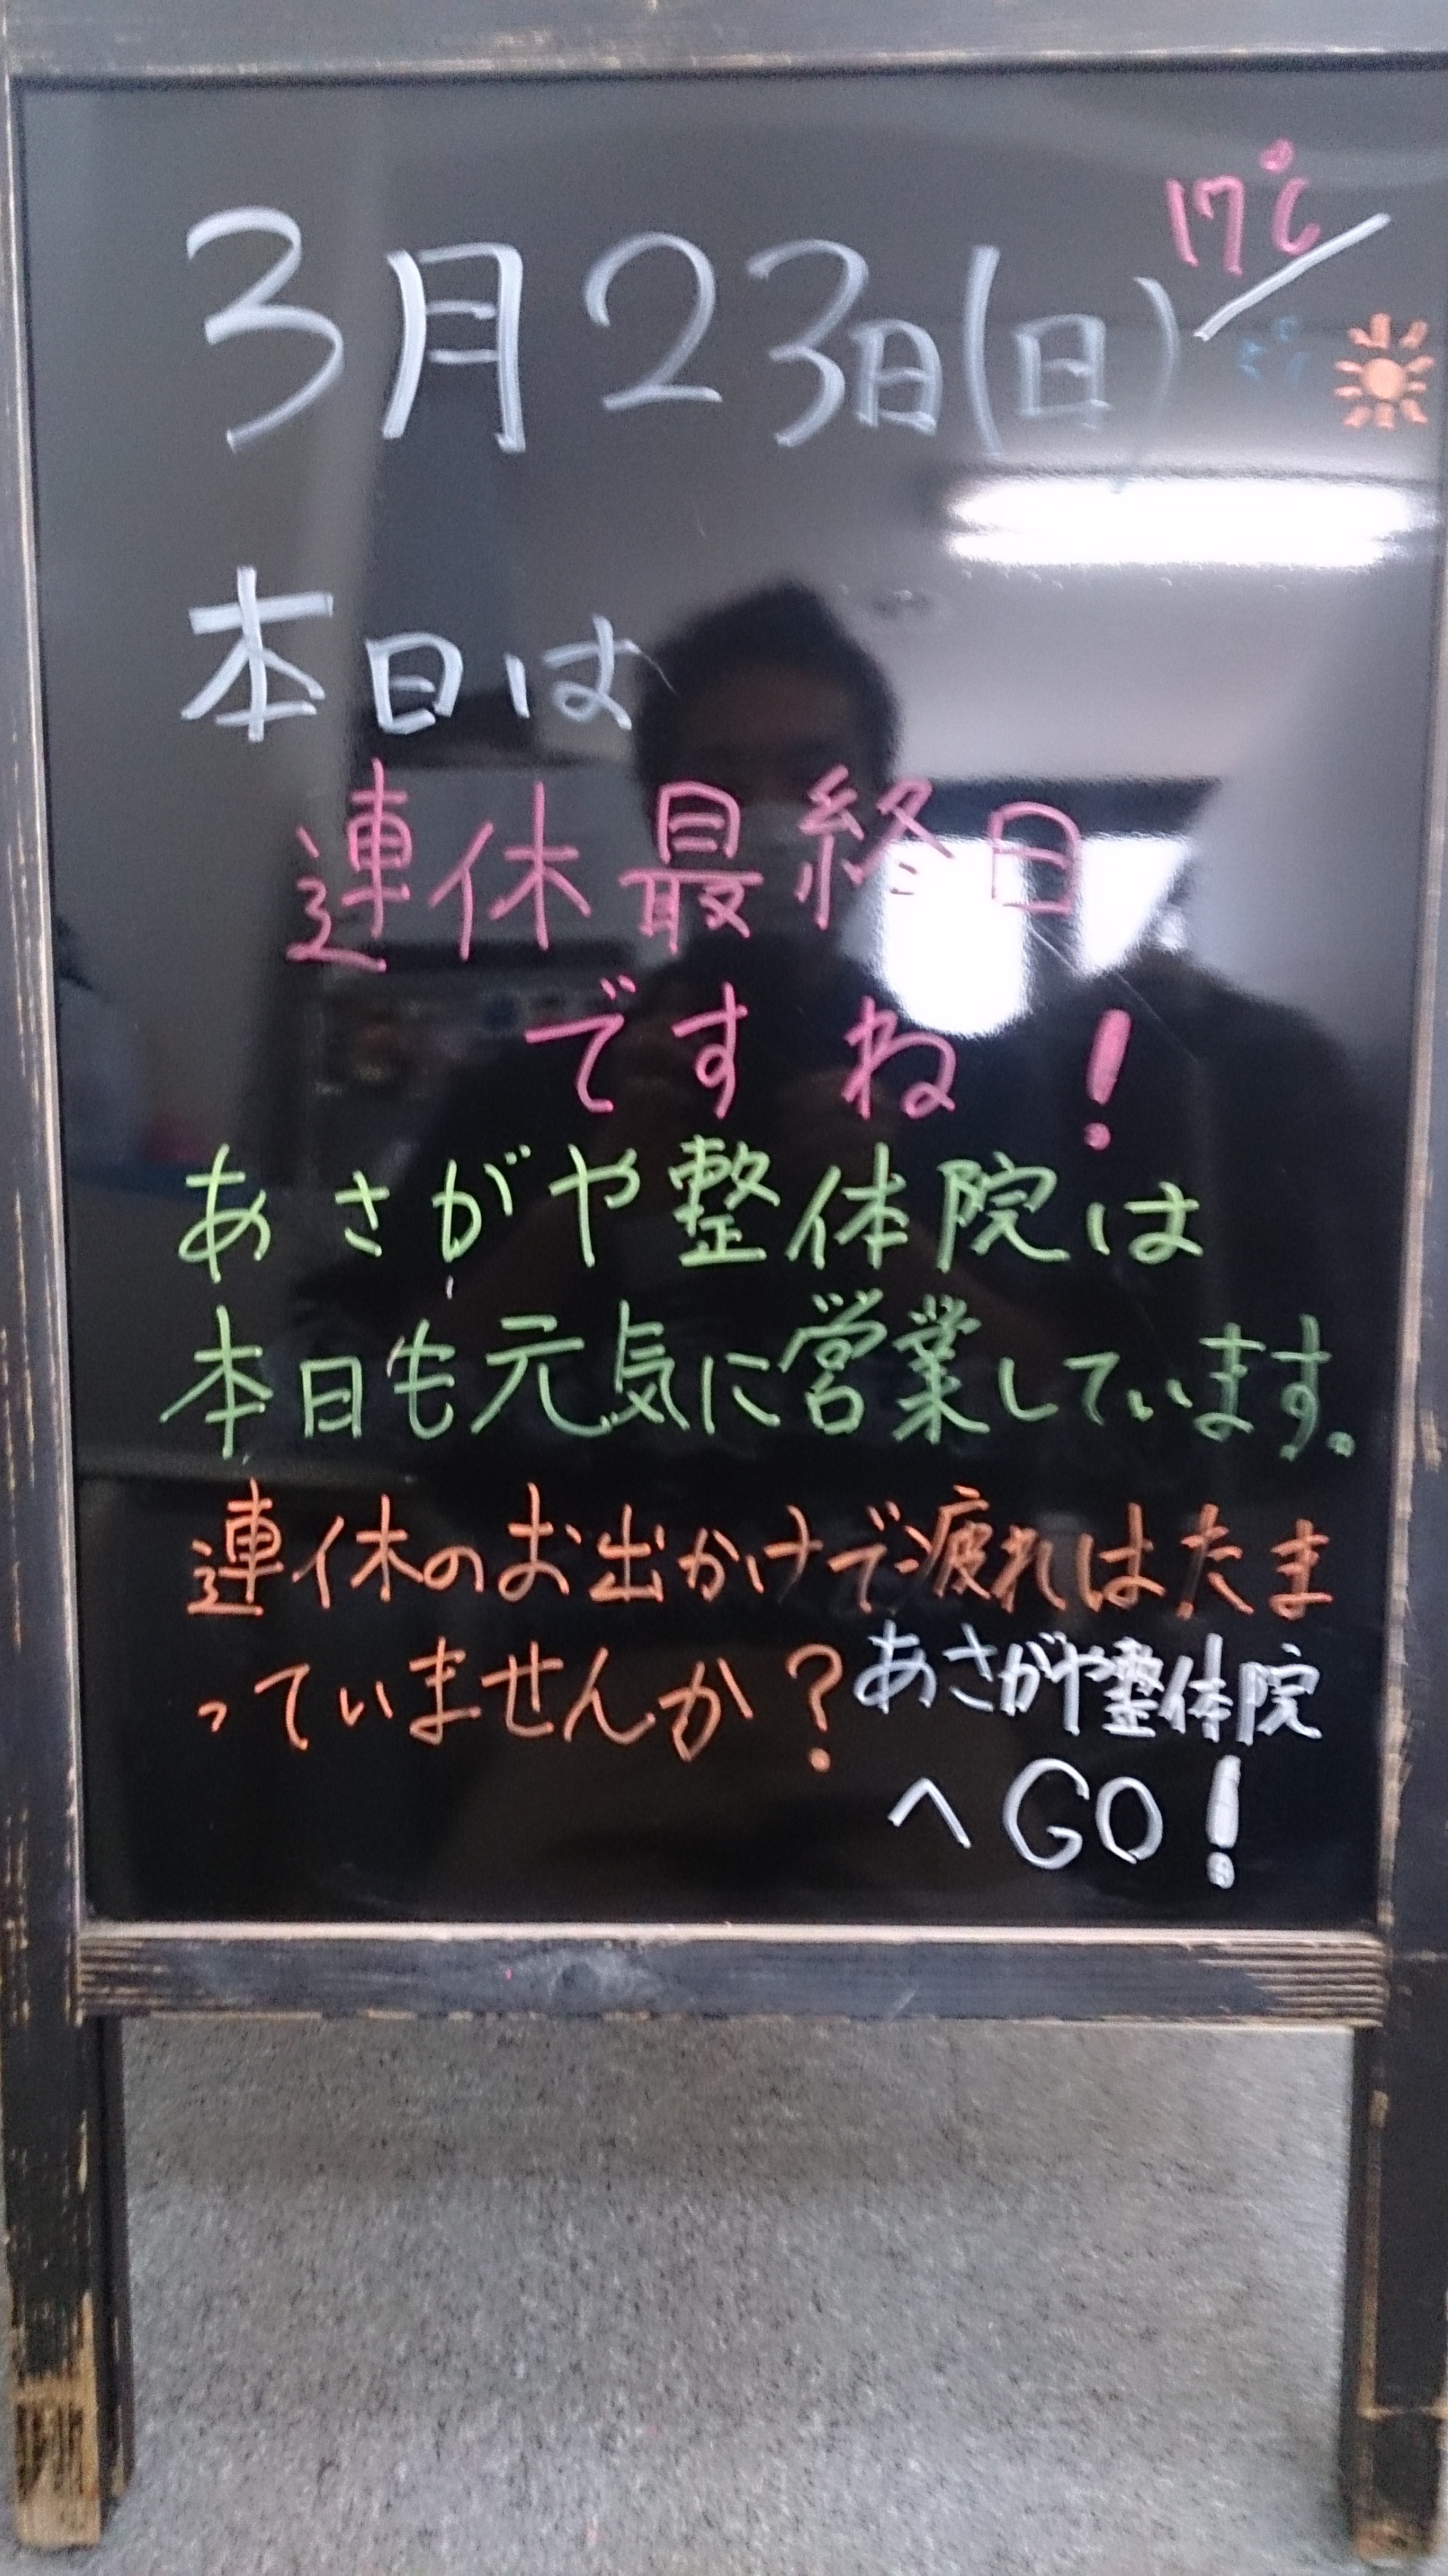 17℃
3月23日(日)
5℃
本日は
連休最終日
ですね!
あさがや整体院は
本日も元気に営業しています。
連休のお出かけで疲れはたま
っていませんか?あさがや整体院
へGO!